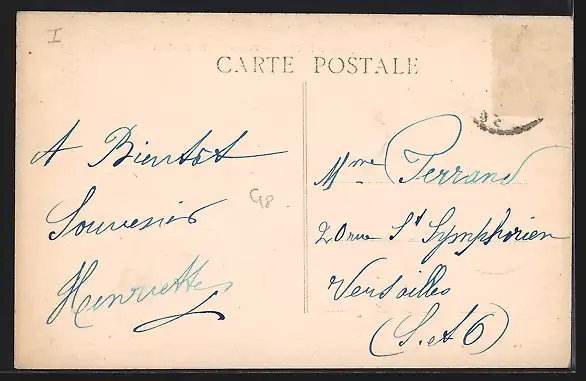 I
CARTE POSTALE
A Bientot
Souvenirs
Henriette
G8
Mme Ferrand
20 rue St Symphorien
Versailles
(S. et O)